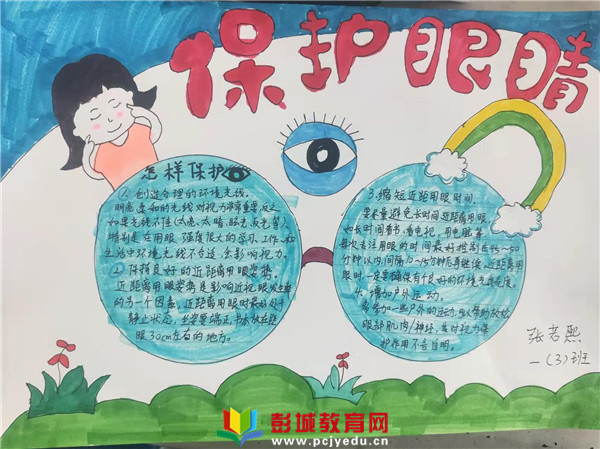 保护眼睛
怎样保护
1、创造合理的环境光线。
明亮柔和的光线对视力非常重要,反之
如果光线不佳(太亮、太暗、眩光、反光等)
增加近距离
生活中环境光线不合适,会影响视力。
2、保持良好的近距离用眼姿势。
近距离用眼姿势是影响近视眼发生率
的另一个因素,近距离用眼时最好处于
静止状态,坐姿要端正,书本放在距
眼30cm左右的地方。
3.缩短近距用眼时间,
要尽量避免长时间近距离用眼
如长时间看书、看电视、用电脑等
每次专注用眼的时间最好控制在
分钟以内,间隔
眼时,一定要确保有良好的环境光线亮度。
4、增加户外运动。
多参加一些户外的运动,
眼部肌肉/神经,其对视力保
护作用不言自明。
张若熙
一(3)班
彭城教育网
www.pcjyedu.cn